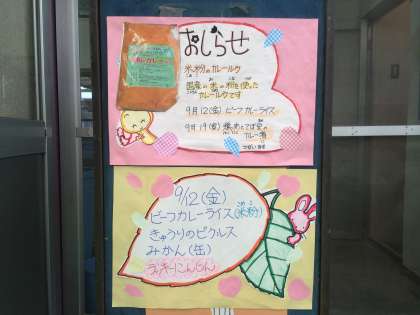 おしらせ
米粉のカレールウ
国産の米の粉を使った
カレールウです
9月12(金) ビーフカレーライス
9月19(金)
カレー煮
9/12(金)
ビーフカレーライス(米粉)
きゅうりのピクルス
みかん(缶)
ラッキーにんじん